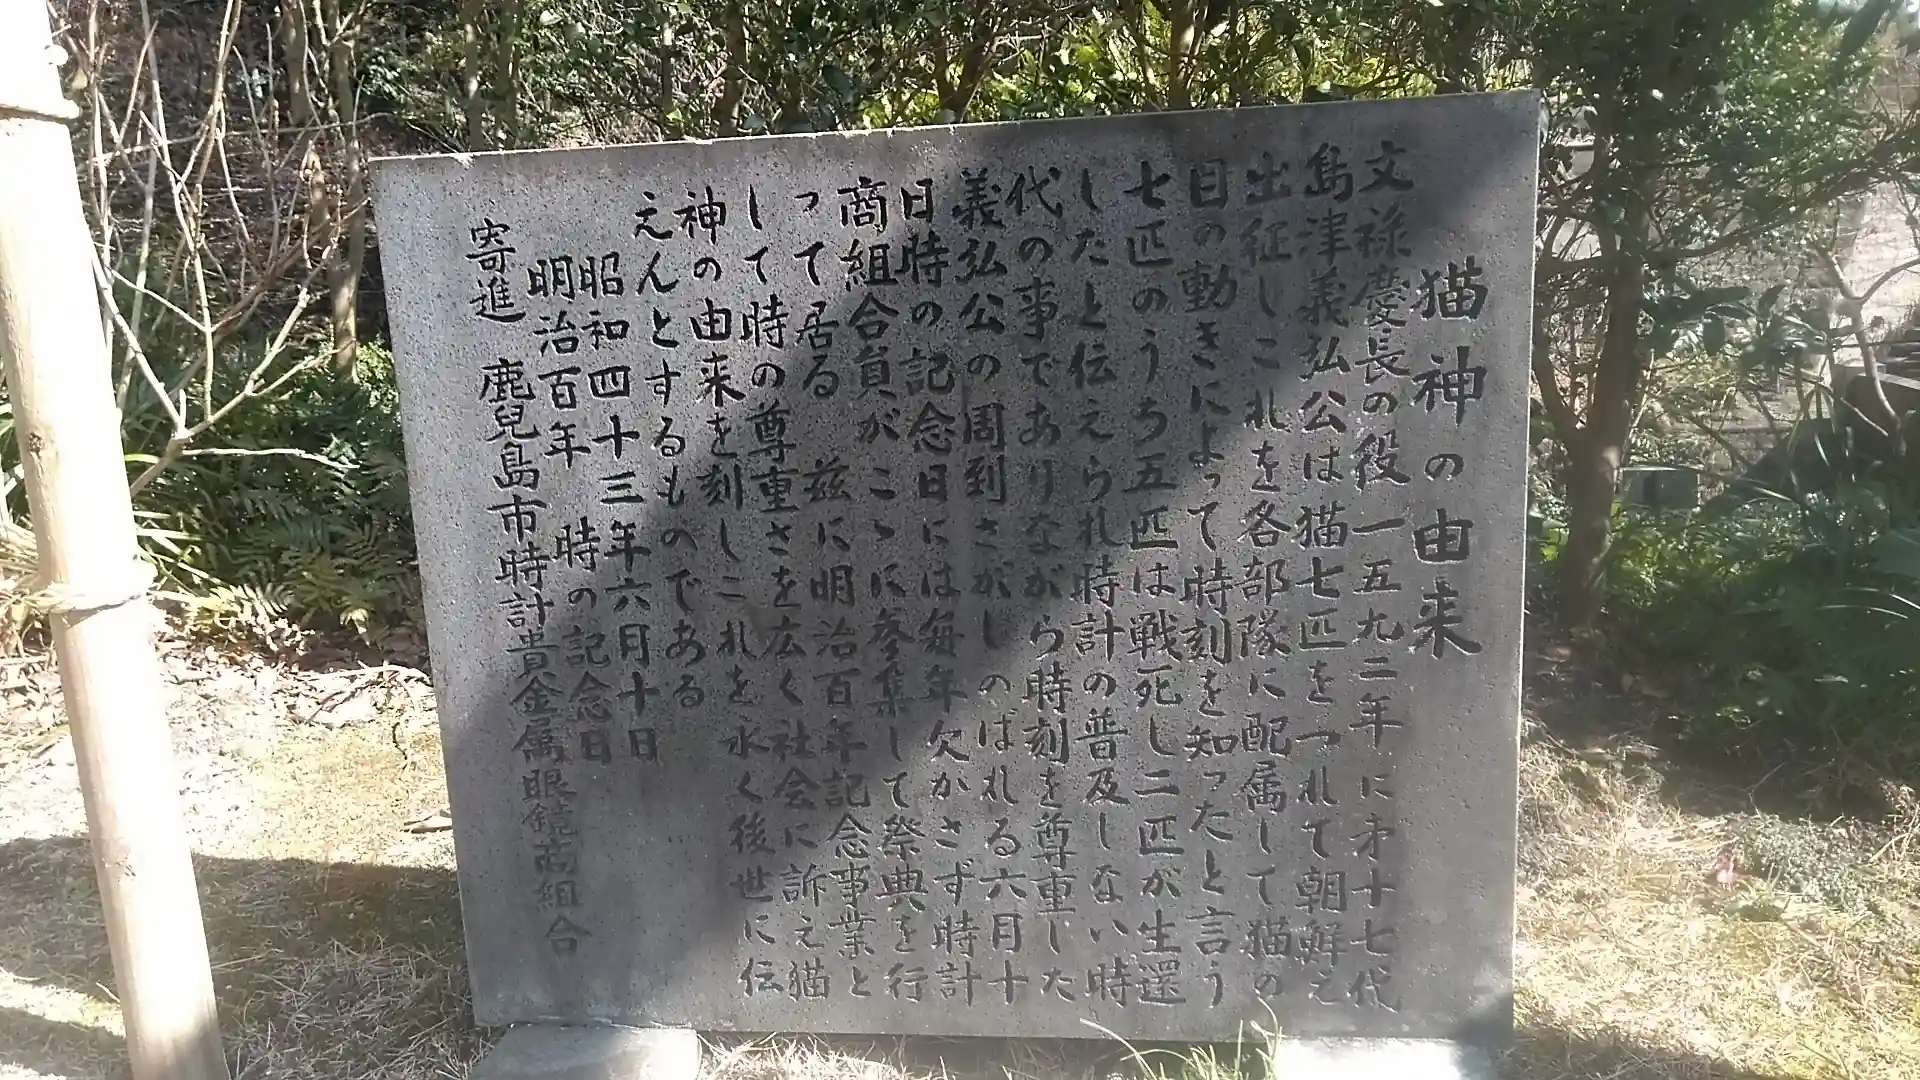 猫神の由来
文禄慶長の役一五九二年に才十七代
島津義弘公は猫七匹をつれて朝鮮え
出征しこれを各部隊に配属して猫の
目の動きによって時刻を知ったと言う
七匹のうち五匹は戦死し二匹が生還
したと伝えられ時計の普及しない時
代の事でありながら時刻を尊重した
義弘公の周到さがしのばれる六月十
日時の記念日には毎年欠かさず時計
商組合員がこゝに参集して祭典を行
って居る 茲に明治百年記念事業と
して時の尊重さを広く社会に訴え猫
神の由来を刻しこれを永く後世に伝
えんとするものである
昭和四十三年六月十日
明治百年 時の記念日
寄進 鹿児島市時計貴金属眼鏡商組合